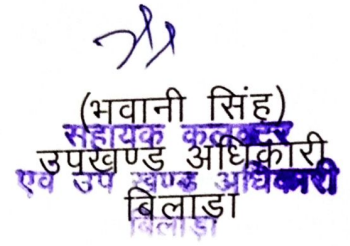 (भवानी सिंह)
सहायक कलक्टर
उपखण्ड अधिकारी
एवं उप खण्ड अधिकारी
बिलाड़ा
बिलाड़ा